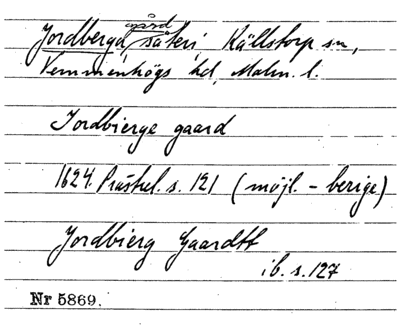 Jordberga, gård säteri, Källstorp sn,
Vemmenhögs hd, Malm. l.
Jordbierge gaard
1624. Prästrel. s. 121 (möjl. - berige)
Jordbierg Gaardtt
ib. s. 127
Nr 5869.